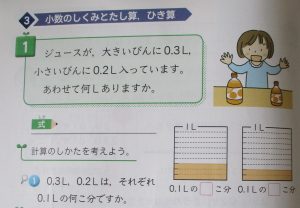 3 小数のしくみとたし算，ひき算
1
ジュースが，大きいびんに0.3L，
小さいびんに0.2L入っています。
あわせて何Lありますか。
式
計算のしかたを考えよう。
1 0.3L，0.2Lは，それぞれ
0.1Lの何こ分ですか。
1L 1L
0.1Lの□こ分 0.1Lの□こ分